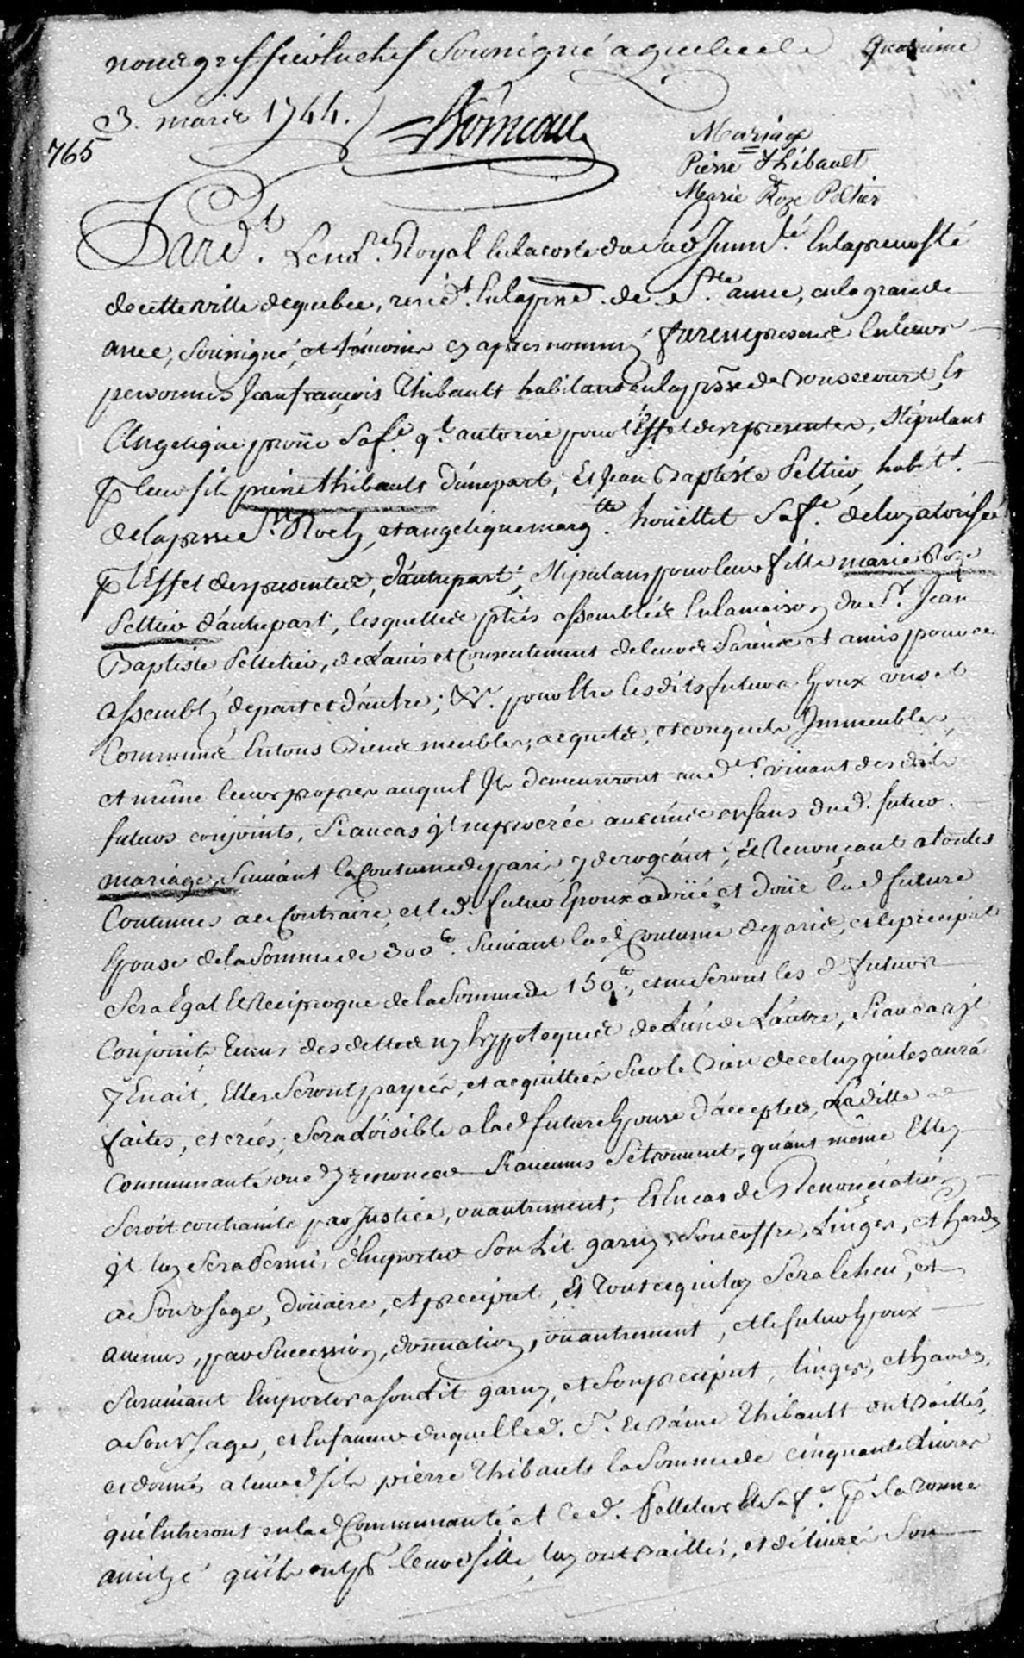 nous greffier en chef soussigné a quebec le quatrieme
3. mars 1744.
Boireau
765
Mariage
Pierre Thibault
&
Marie Roze Peltier
Pard.t Le no.re Royal de la coste du sud Immt.é En la prevosté
de cette ville de quebec, resid.t En la psse. de Ste. anne, en la grande
ance, soussigné, et témoins cy apres nommez furent presents En leurs
personnes Jean françois Thibault habitant en la psse de Bonsecourt, Et
Angelique prou[...] Sa fe. qt. autorise pour l'Effet des presentes, Stipulant
pr leur fils pierre thibault d'une part, Et Jean Baptiste Peltier, habitt.
de la psse St. Roch, et angelique margtte. hoüellet Sa fe. de luy atorisée
pr l'Effet des presentes, d'autre part, Stipulans pour leur fille marie Roze
Peltier d'autre part, lesquelles pties assemblées En la maison du Sr. Jean
Baptiste Pelletier, de L'avis et Consentement de leurs Parens et amis pour ce
assemblez de part et d'autre; &c. pour Etre lesdits futurs Epoux uns et
Communs En tous Biens meubles, acquets, et conquets Immeubles,
et même leurs propres auquel Ils demeureront au dr. vivant desdits
futurs conjoints, Si au cas qt. n'y so[...] crée aucuns enfans du d. futur
mariage, Suivant la Coutume de paris, y derogeant, Et Renonçant a toutes
Coutumes a ce Contraire, et le d. futur Epoux a doüé et doüe lad future
Epouse de la Somme de 300tt. Suivant lad Coutume de paris, et le preciput
Sera Egal Et Reciproque de la Somme de 150tt, et ne Seront les d. futurs
Conjoints Tenus des dettes ny hypoteques de L'un de L'autre, Si au cas yl
y En ait, Elles Seront payées, et acquittées Sur le Bien de celuy qui les aura
faites, et créés, Sera Loisible a lad future Epouse d'accepter, Ladite
Communauté ou d'y renoncer franchement et [...], quant même Elle
Seroit contrainte par Justice, ou autrement; Et En cas de Renonciation
qt luy Sera Permis d'Emporter Son Lit garny, Son coffre, Linges, et hardes
a Son Usage, Doüaire, et preciput, Et Tout ce qui luy Sera Echeu, et
avenus, par Succession, donnation, ou autrement, et le futur Epoux
Survivant Emportera Son Lit garny, et Son preciput, linges, et hardes,
a Son Usage, et En faveur duquel led. Sr. Et Dame Thibault ont Baillés,
et donnés a leurd fils pierre Thibault la Somme de cinquante Livres
qui Entreront en lad Communauté et le d. Pelletier Et Sa fe. pr la bonne
amitié qu'ils ont pr leurd fille, luy ont Baillés, et délivré Son